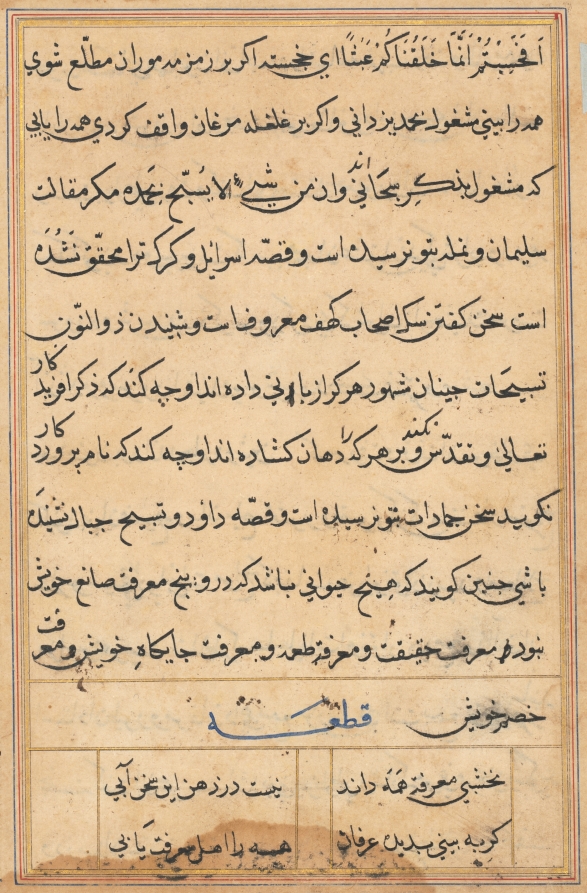 اَفَحَسِبْتُمْ اَنَّمَا خَلَقْنَاكُمْ عَبَثًا ای خجسته اکر بر زمزمه موران مطلّع شوي
همه را بيني مشغول بحمد يزداني واکر بر غلغله مرغان واقف کردي همه را يابي
که مشغول بذکرِ سبحاني اند وان من شيءٍ الا يُسبّح بحمده مکر مقالت
سليمان و نمله بتو نرسيده است و قصّه اسرائيل و کرک ترا محقّق نَشُدَه
است سخن کفتن سک اصحاب کهف معروف است و شنيدن ذوالنّون
تسبيحات حيتان مشهور هر کرا زباني داده اند او چه کند که ذکر افريدکار
تعالیٰ و تقدّس نکند و هر که را دهان کشاده اند او چه کند که نام پروردکار
نکويد سخن جمادات بتو نرسيده است و قصّه داؤد و تسبيح جبال نشنيده
باشي چنين کويند که هيچ حيواني نباشد که درو پنج معرفت صانع خويش
نبود معرفت حقيقت و معرفة طعمه و معرفت جايکاهِ خويش و معرفت
خصم خويش قطعه
نخشبي معرفة همه داند نيست در ذهن اين سخن آبي
کر به بيني بديده عرفان همه را اهل معرفت يابي